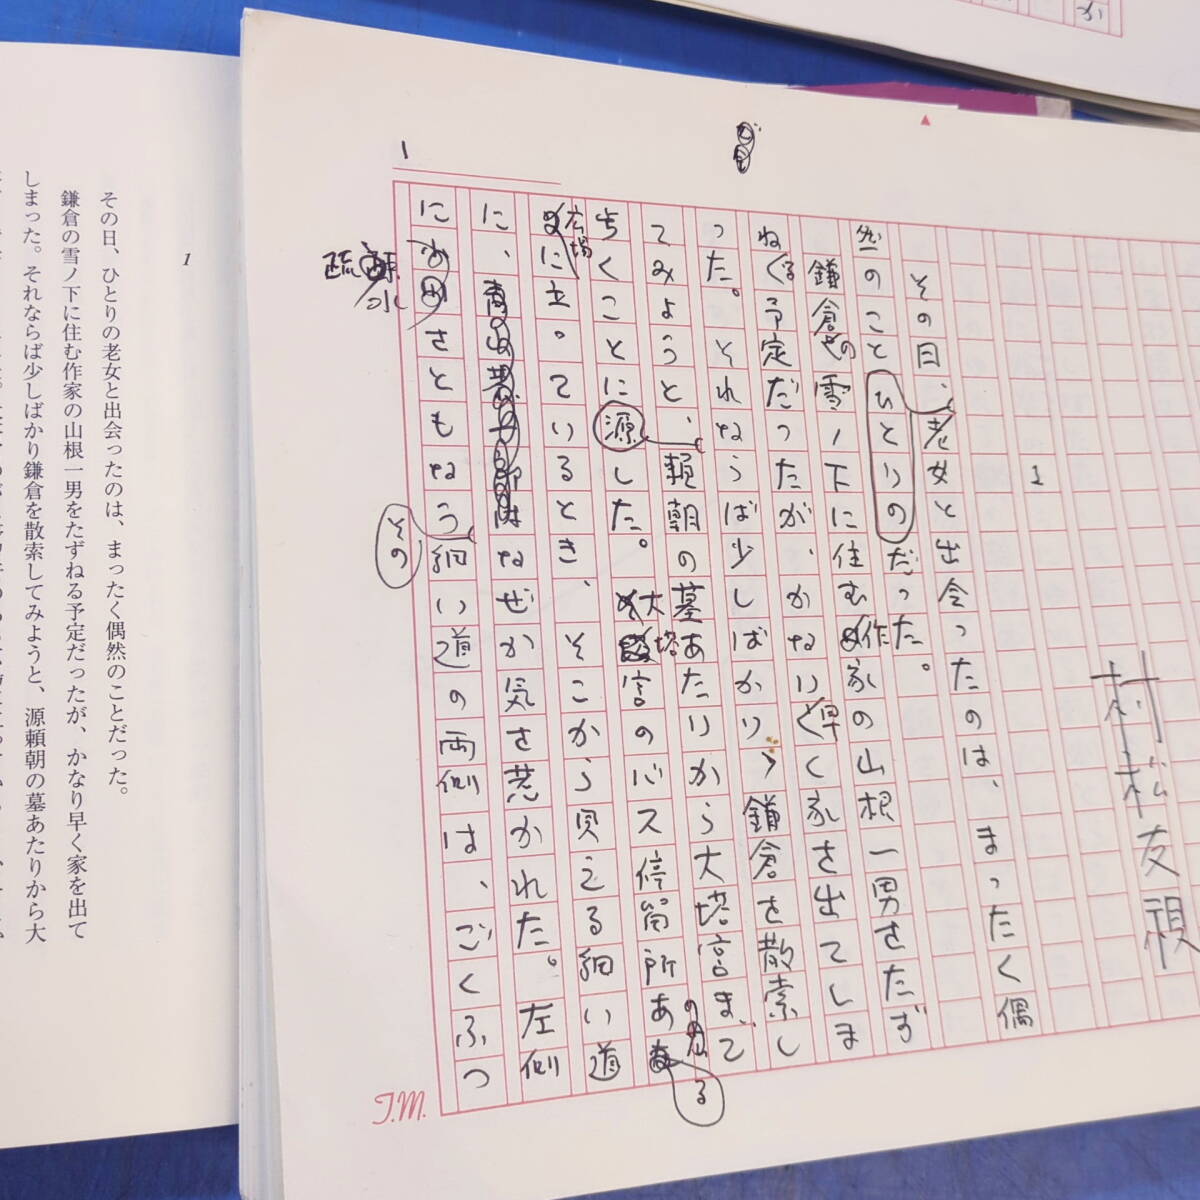 村松友視
1
その日、老女と出会ったのは、まったく偶
ひとりの
然のことだった。
鎌倉の雪ノ下に住む作家の山根一男をたず
ねる予定だったが、かなり早く家を出てしま
った。それならば少しばかり鎌倉を散索し
てみようと、頼朝の墓あたりから大塔宮まで
源
歩くことにした。大塔宮のバス停留所のある
広場に立っているとき、そこから見える細い道
に、なぜか気を惹かれた。左側
にさともなう細い道の両側は、ごくふつ
その
疏水
1
T.M.
1
その日、ひとりの老女と出会ったのは、まったく偶然のことだった。
鎌倉の雪ノ下に住む作家の山根一男をたずねる予定だったが、かなり早く家を出て
しまった。それならば少しばかり鎌倉を散索してみようと、源頼朝の墓あたりから大